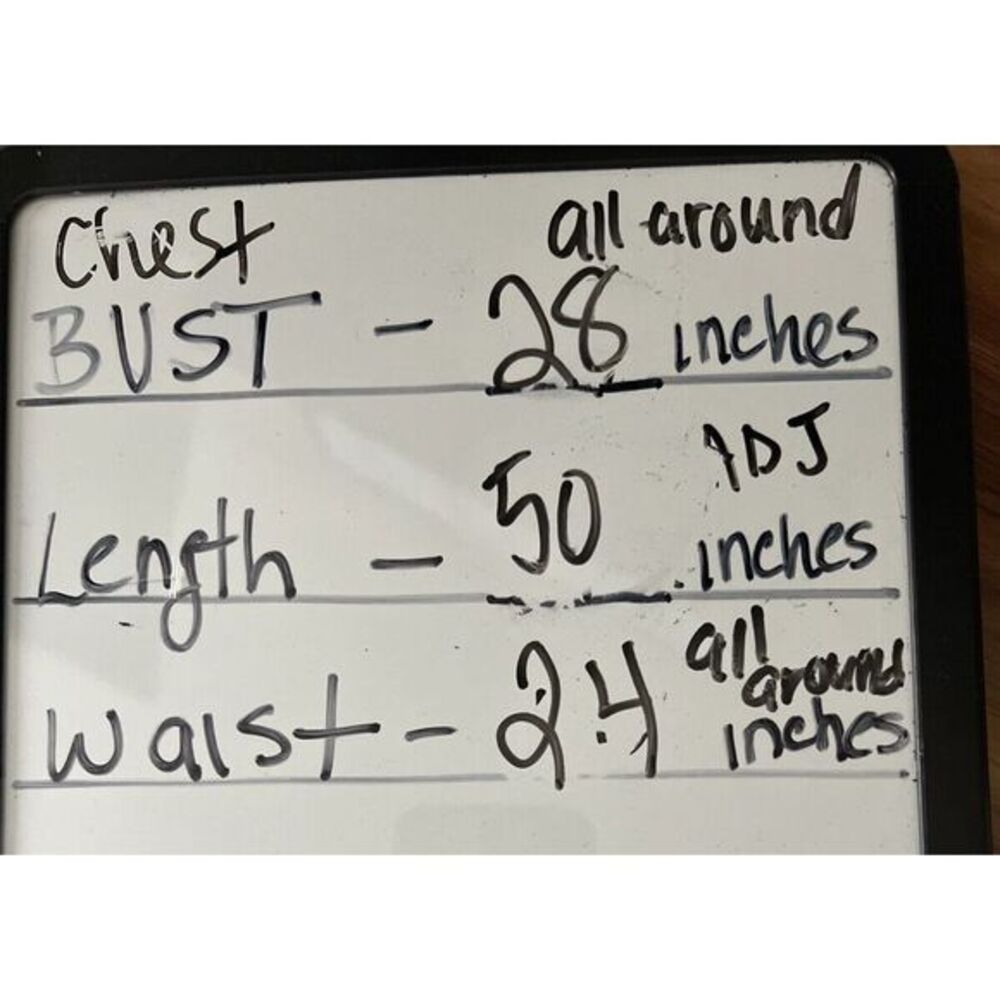 Chest all around
BUST - 28 inches
ADJ
Length - 50 inches
all around
Waist - 24 inches